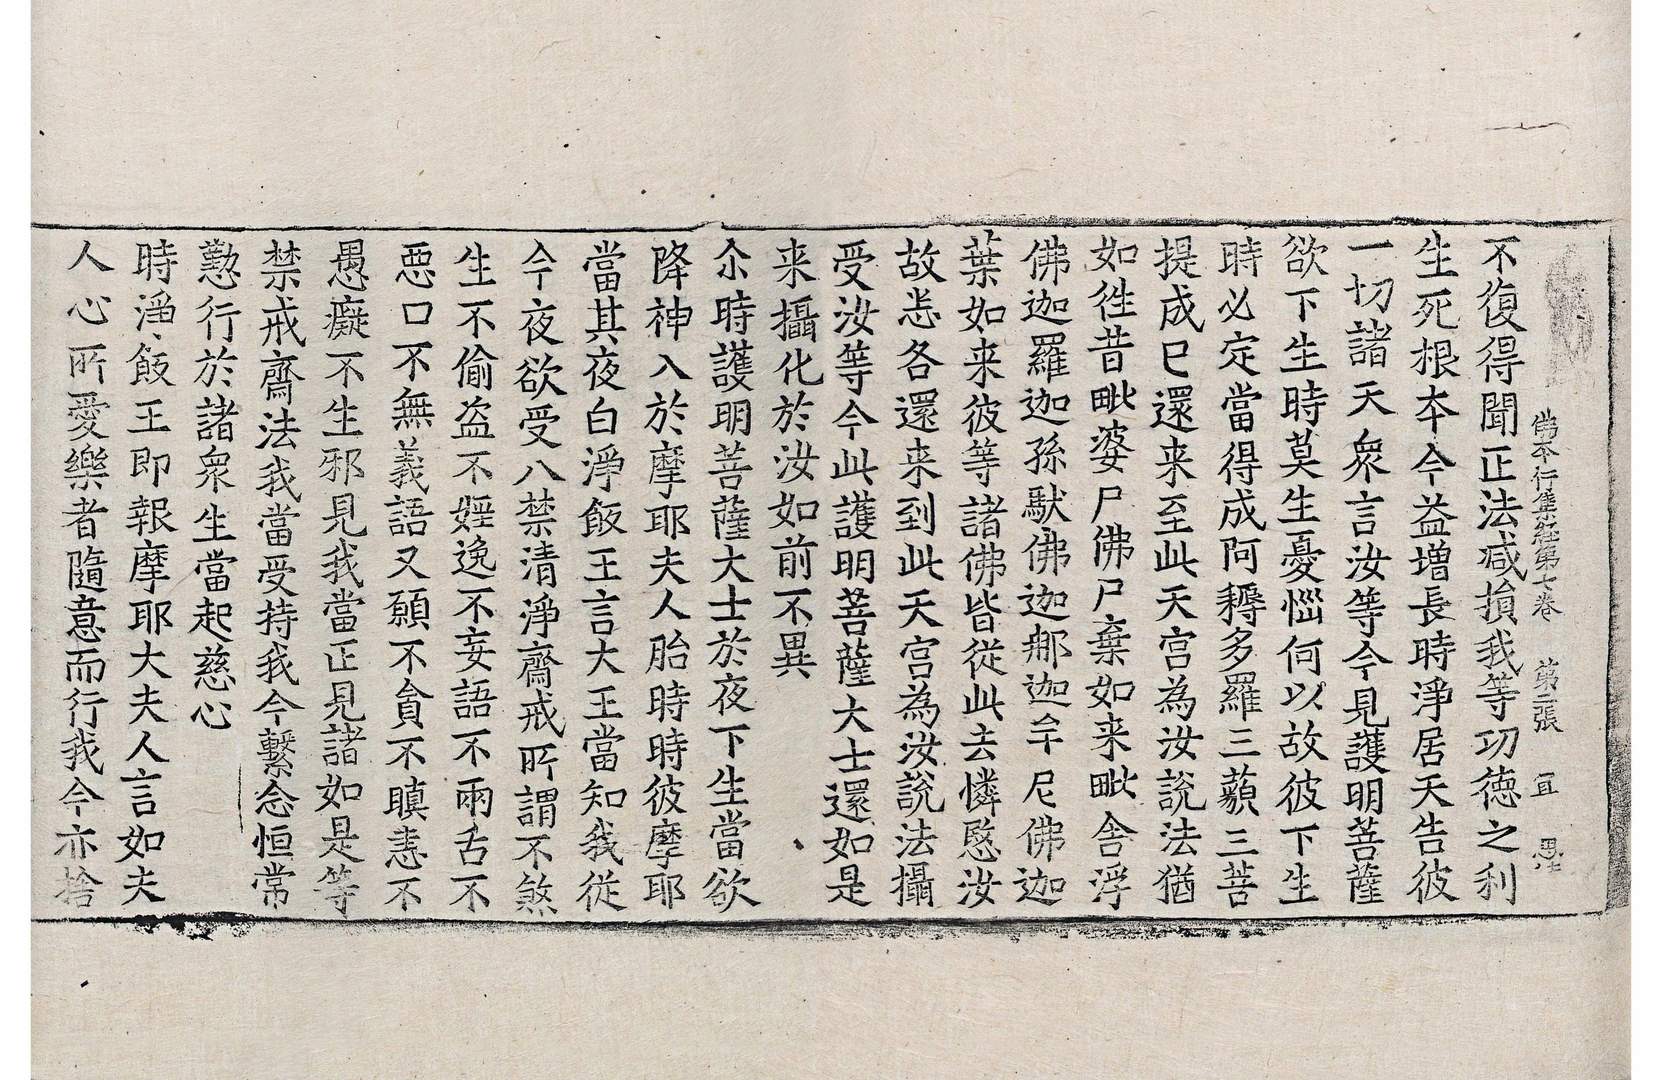 佛本行集經第七卷　第二張　宜　愚
不復得聞正法减損我等功德之利
生死根本今益增長時淨居天告彼
一切諸天衆言汝等今見護明菩薩
欲下生時莫生憂惱何以故彼下生
時必定當得成阿耨多羅三藐三菩
提成已還来至此天宫為汝說法猶
如徃昔毗婆尸佛尸棄如来毗舍浮
佛迦羅迦孫馱佛迦那迦牟尼佛迦
葉如来彼等諸佛皆從此去憐愍汝
故恙各還来到此天宫為汝說法攝
受汝等今此護明菩薩大士還如是
来攝化於汝如前不異
尒時護明菩薩大士於夜下生當欲
降神入於摩耶夫人胎時時彼摩耶
當其夜白淨飯王言大王當知我從
今夜欲受八禁清淨齋戒所謂不煞
生不偷盗不婬逸不妄語不兩舌不
惡口不無義語又願不貪不瞋恚不
愚癡不生邪見我當正見諸如是等
禁戒齋法我當受持我今繫念恒常
懃行於諸衆生當起慈心
時淨飯王即報摩耶大夫人言如夫
人心所愛樂者隨意而行我今亦捨